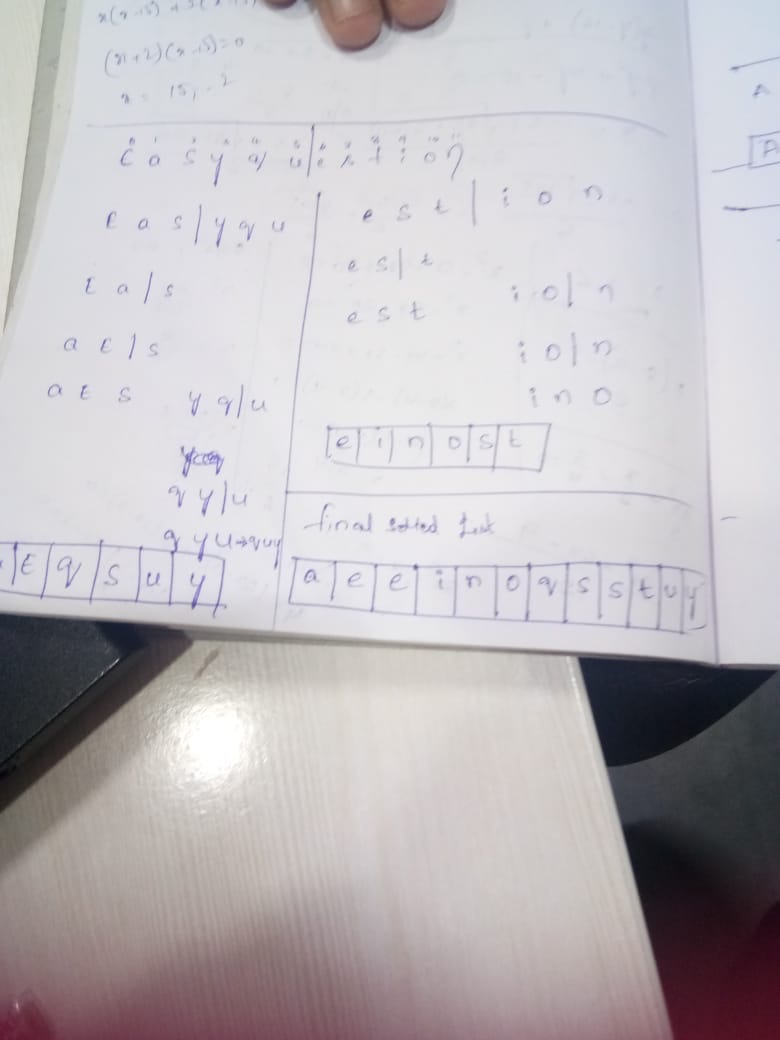 (x+2)(x-15)=0
x = 15, -2
E a s y q u | e s t i o n
E a s | y q u
E a | s
a E | s
a E s
y q | u
q y | u
q y u → quy
E q s u y
e s t | i o n
e s | t
e s t
i o | n
i o | n
i n o
e i n o s t
final sorted list
a e e i n o q s s t u y
A